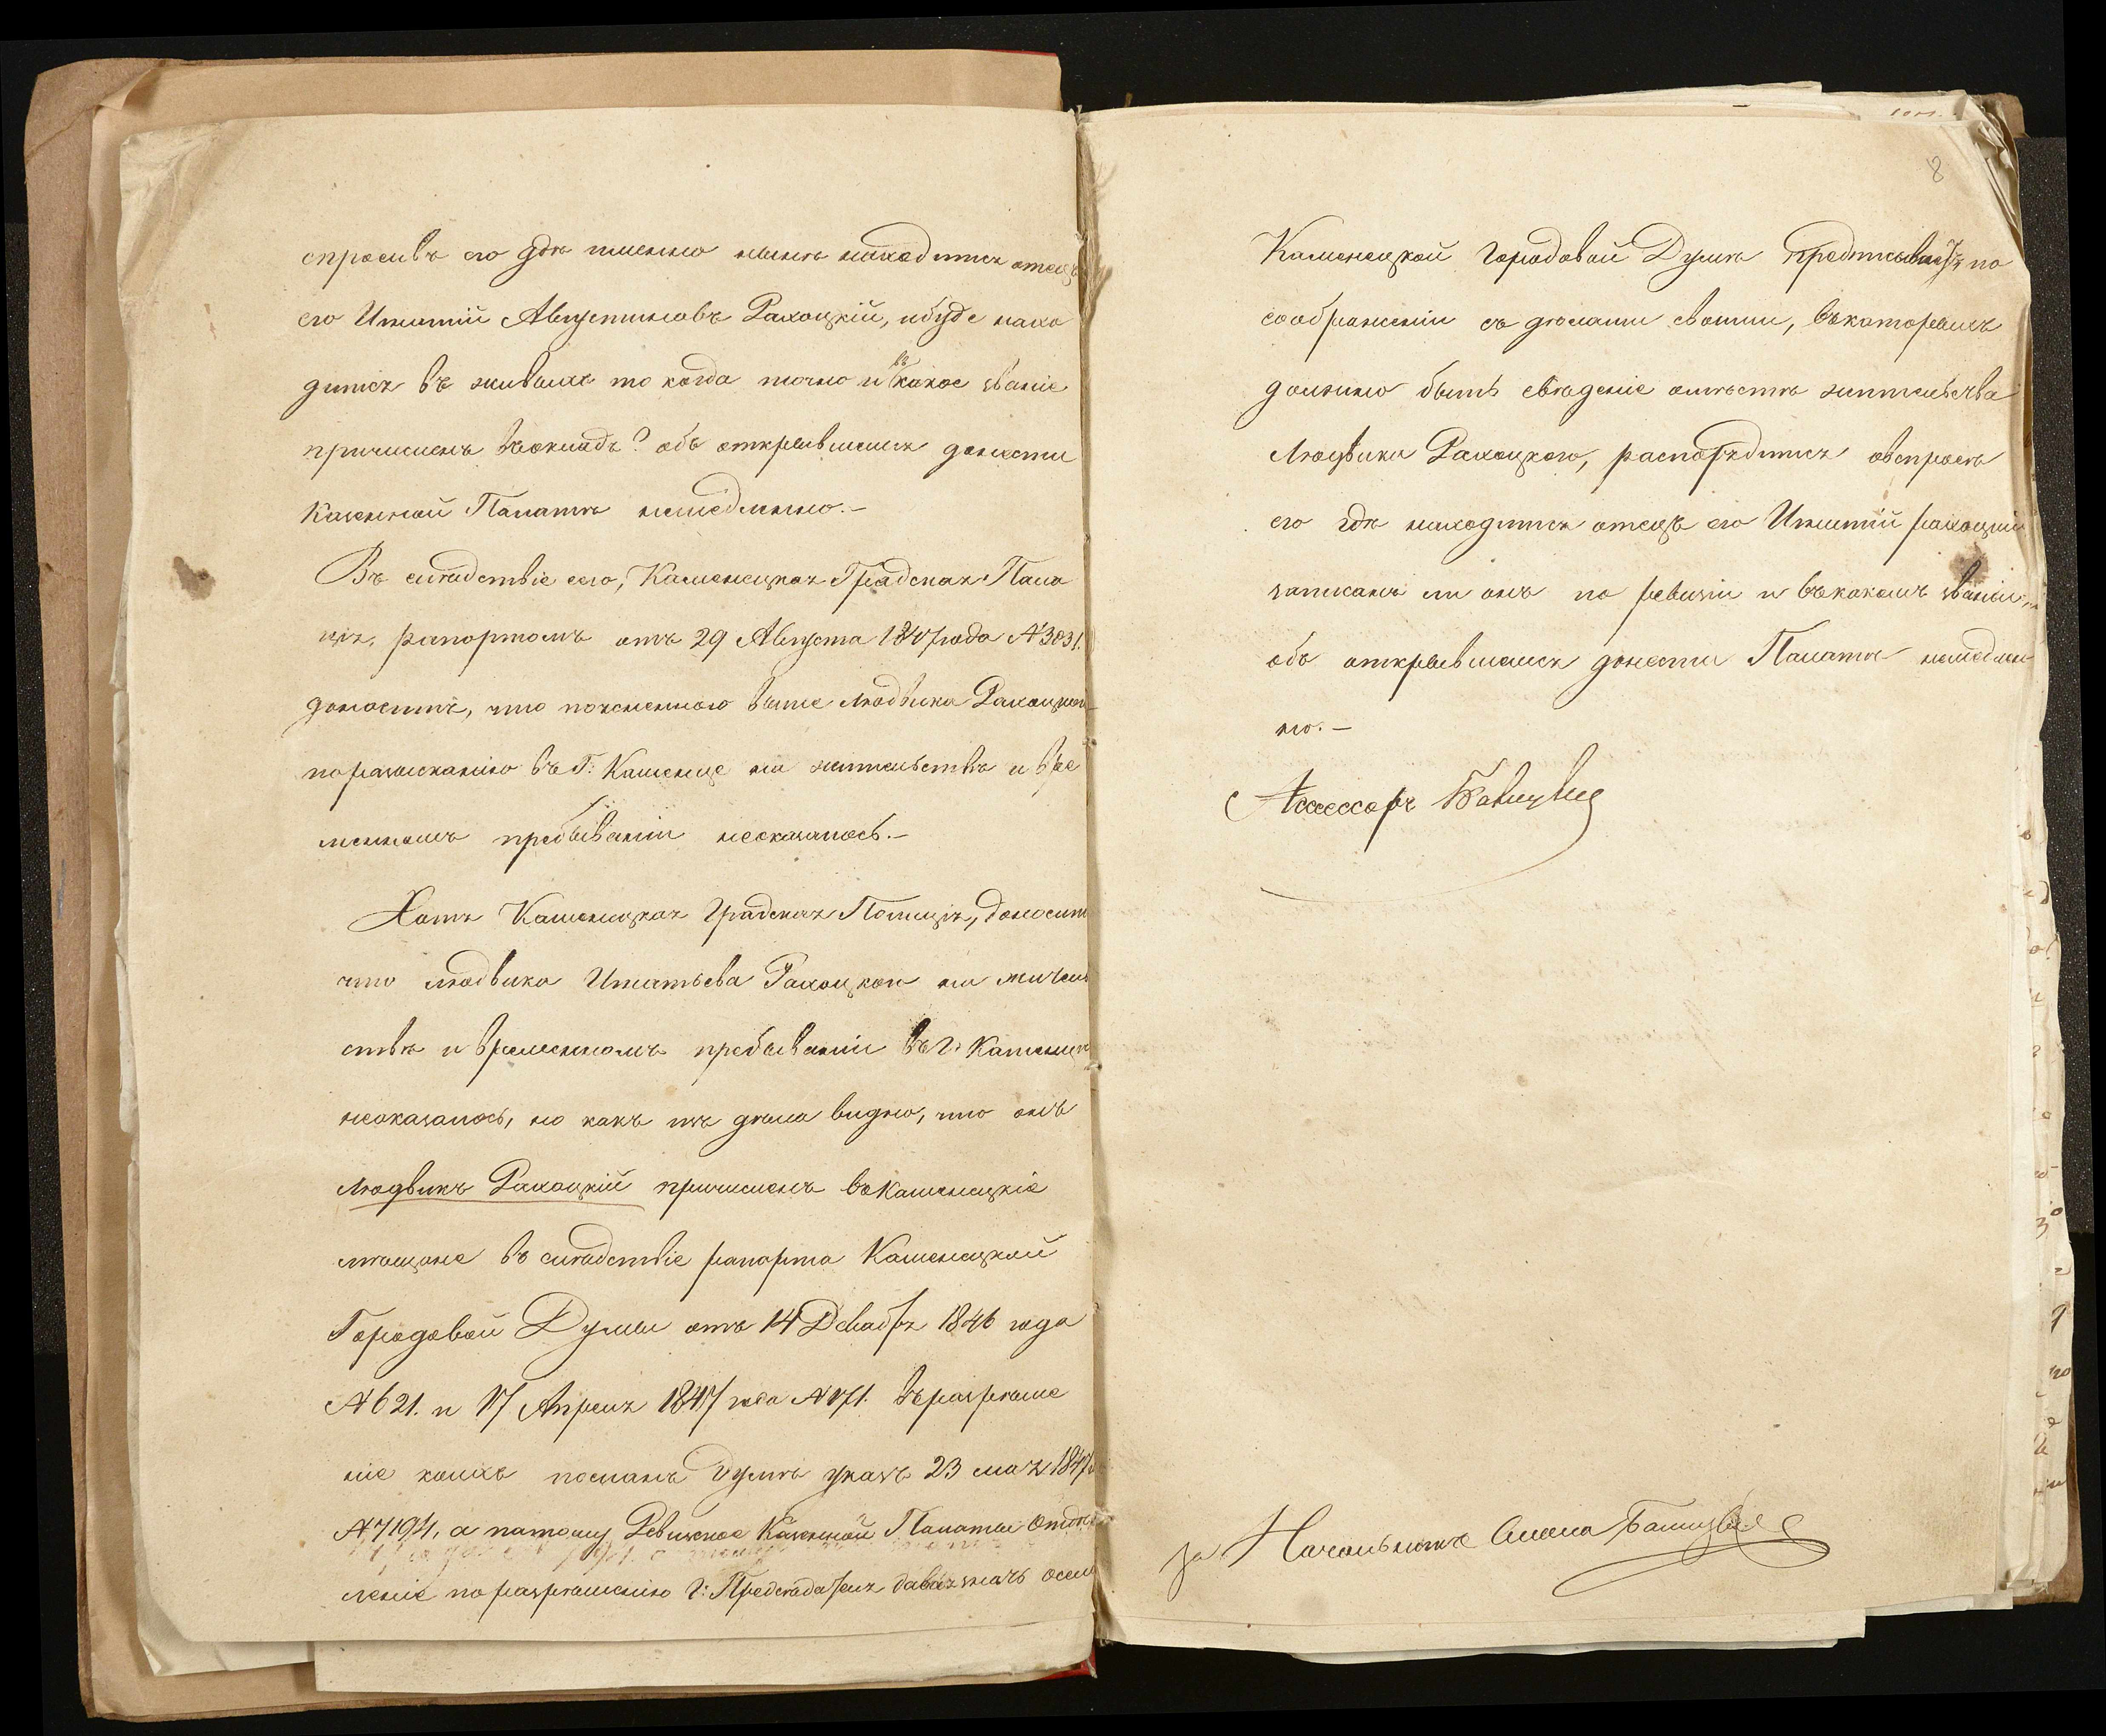 спросивъ его гдѣ именно нынѣ находится отецъ
его Игнатій Августиновъ Рахоцкій, ибуде нахо
дится въ живыхъ то когда точно и въ какое званіе
причисленъ въокладъ? объ открывшемся донести
Казенной Палатѣ немедленно.—
Въ слѣдствіе сего, Каменецкая Градская Поли
ція, рапортомъ отъ 29 Августа 1847 года № 3031.
доноситъ, что поясненного выше Людвика Рахоцкого
поразысканію въ Г: Каменце на жительствѣ и вре
менномъ пребываніи неоказалось.—
Хотя Каменецкая Градская Полиція, доноситъ
что Людвика Игнатьева Рахоцкого на житель
ствѣ и временномъ пребываніи въ г. Каменцѣ
неоказалось, но какъ изъ дѣла видно, что онъ
Людвикъ Рахоцкій причисленъ въКаменецкіе
мѣщане въ слѣдствіе рапорта Каменецкой
Городовой Думы отъ 14 Декабря 1846 года
№ 621. и 17 Апреля 1847 года № 171. въразрѣше
ніе коихъ посланъ Думѣ указъ 23 мая 1847
№ 7194, а потому Ревизское Казенной Палаты Отдѣ
леніе поразрѣшенію Г: Предсѣдателя давая знать осемъ
8
Каменецкой Городовой Думѣ предписываетъ по
соображеніи съ дѣлами своими, въкоторыхъ
должно быть свѣденіе омѣстѣ жительства
Людвика Рахоцкого, распорядится овспросѣ
его гдѣ находится отецъ его Игнатій Рахоцкій
записанъ ли онъ по ревизіи и въкакомъ званіи, и
объ открывшемся донести Палатѣ немедлен
но.—
Ассессоръ
за Начальника Стола